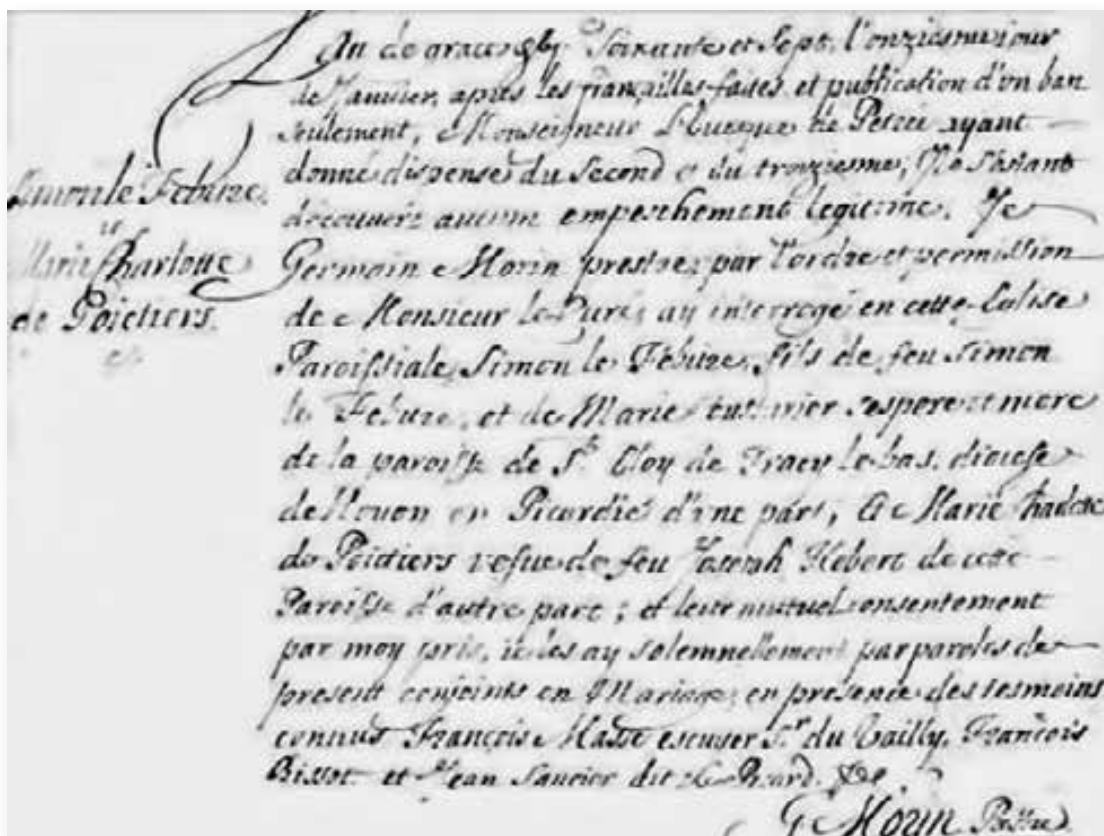 Simon le Febure
et
Marie Charlotte
de Poictiers.
L'an de grace gbj^c Soixante et Sept, l'onziesme jour
de Januier, apres les françailles faites, et publication d'vn ban
seulement, Monseigneur L'Euesque de Petrée ayant
donné dispense du Second et du troiziesme, Ne s'estant
découuert aucun empeschement legitime. Je
Germain Morin prestre, par l'ordre et permission
de Monsieur le Curé, ay interrogé en cette Eglise
Paroissiale, Simon le Febure, fils de feu Simon
le Febure, et de Marie ses pere et mere
de la paroisse de S^t Eloy de Tracy le bas, diocese
de Noyon en Picardie d'vne part, Et Marie Charlote
de Poictiers vefue de feu Joseph Hebert de cete
Paroisse d'autre part ; et leur mutuel consentement
par moy pris, ie les ay solemnellement par paroles de
present conjoints en Mariage, en presence des tesmoins
connus François Massé escuyer S^r du Vailly, François
Bissot et Jean Saucier dit le Picard.
G. Morin Pestre